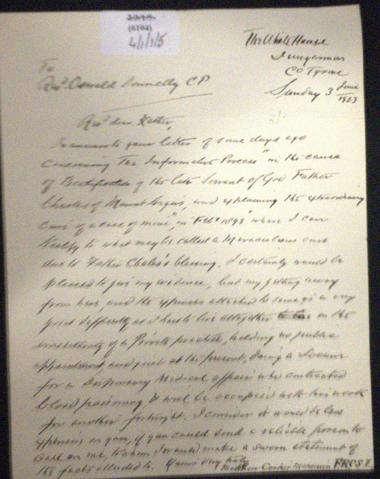 (6104)
4/1/1/5
The White House
Dungannon
Co Tyrone
Sunday 3 June 1923
To
Revd. Oswald Donnelly CP
Revd dear Father,
In answer to your letter of some days ago
concerning The "Informative Process" in the cause
of Beatification of the late Servant of God Father
Charles of Mount Argus, and explaining the extraordinary
cure of a case of mine, in "Feby 1893" where I can
testify to what may be called a Miraculous cure
due to Father Charles's blessing. I certainly would be
pleased to give my evidence, but my getting away
from here and the expenses attached to same is a very
great difficulty as I have to live altogether on the
uncertainty of a Private practice, holding no public
appointment and just at the present, doing a Locum
for a Dispensary Medical Officer who contracted
blood poisoning & will be occupied with his work
for another fortnight. I consider it would be less
expensive on you, if you could send a reliable person to
call on me, to whom I would make a sworn statement of
the facts alluded to. Yours very truly
FRCSI